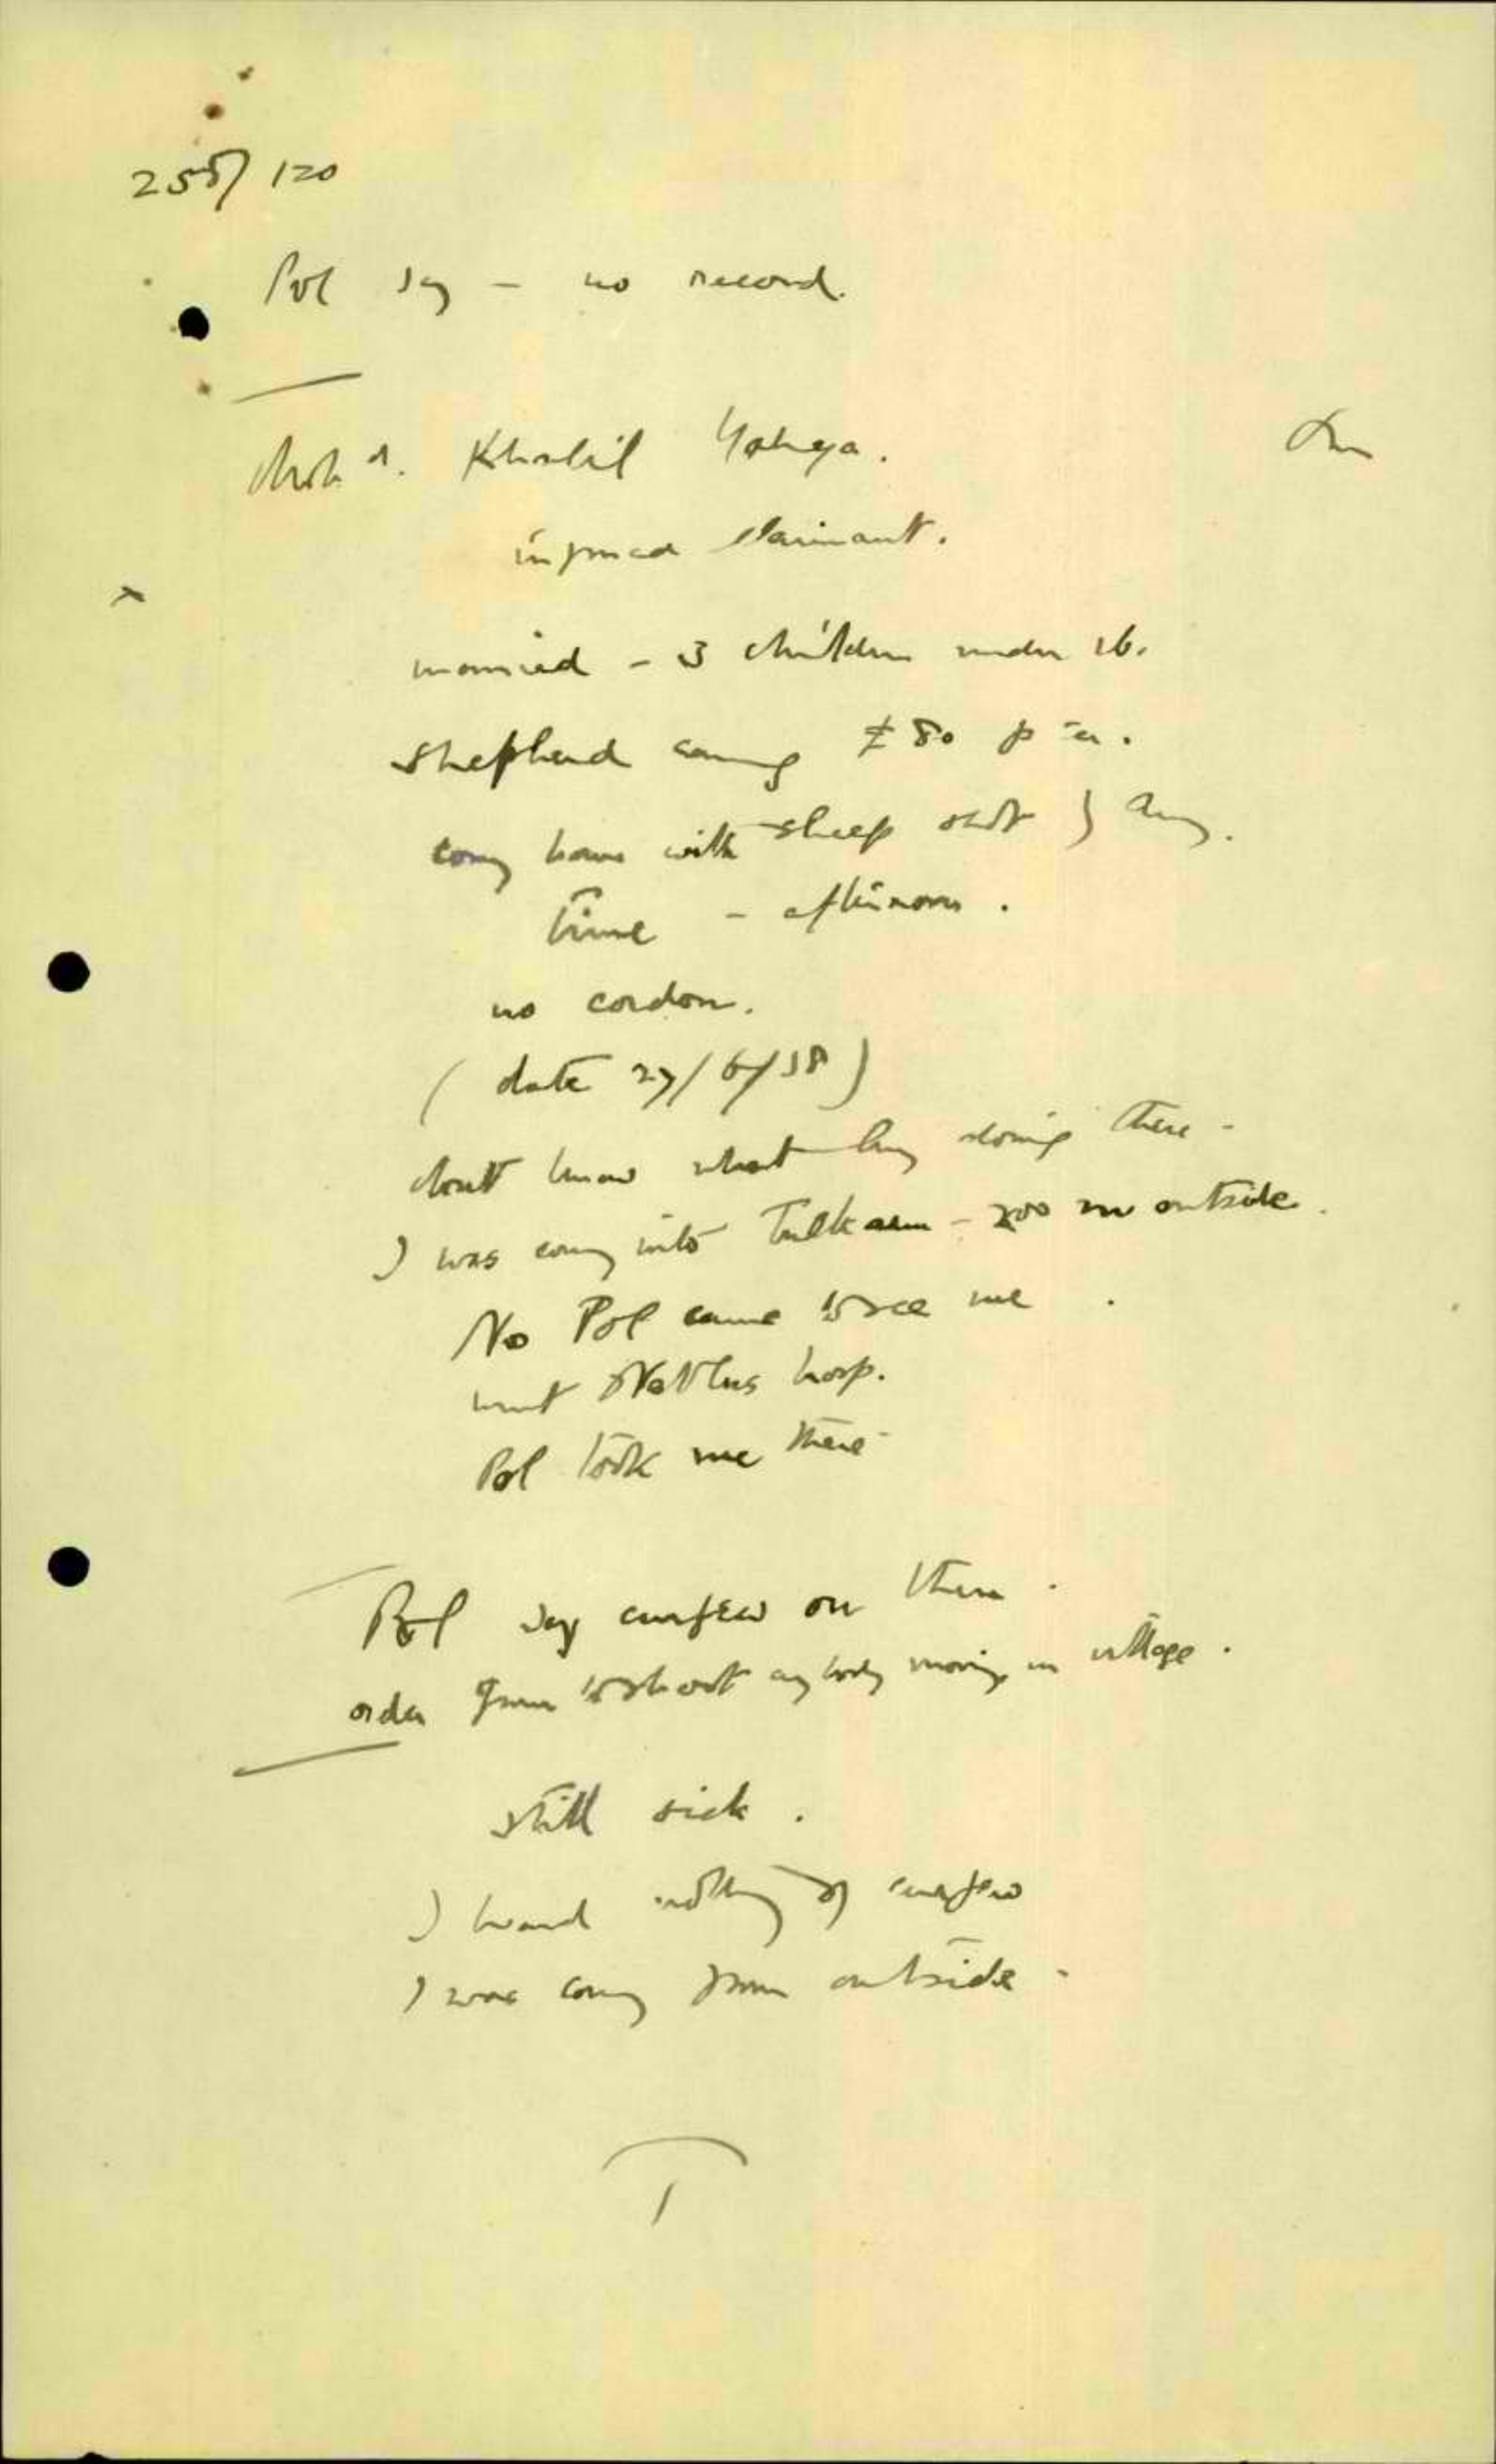 255/120
Pol say - no record.
Mohd. Khalil Yahya.
injured claimant.
married - 3 children under 16.
Shepherd earng £80 p.a.
comg home with sheep shot by Army.
time - afternoon.
no cordon.
(date 27/6/38)
dont know what they doing there -
I was comg into Tulkarm - 200 m outside.
No Pol came to see me.
went Nablus hosp.
Pol took me there
Pol say curfew on then.
order given to shoot anybody moving in village.
still sick.
I heard nothing of curfew
I was comg from outside -